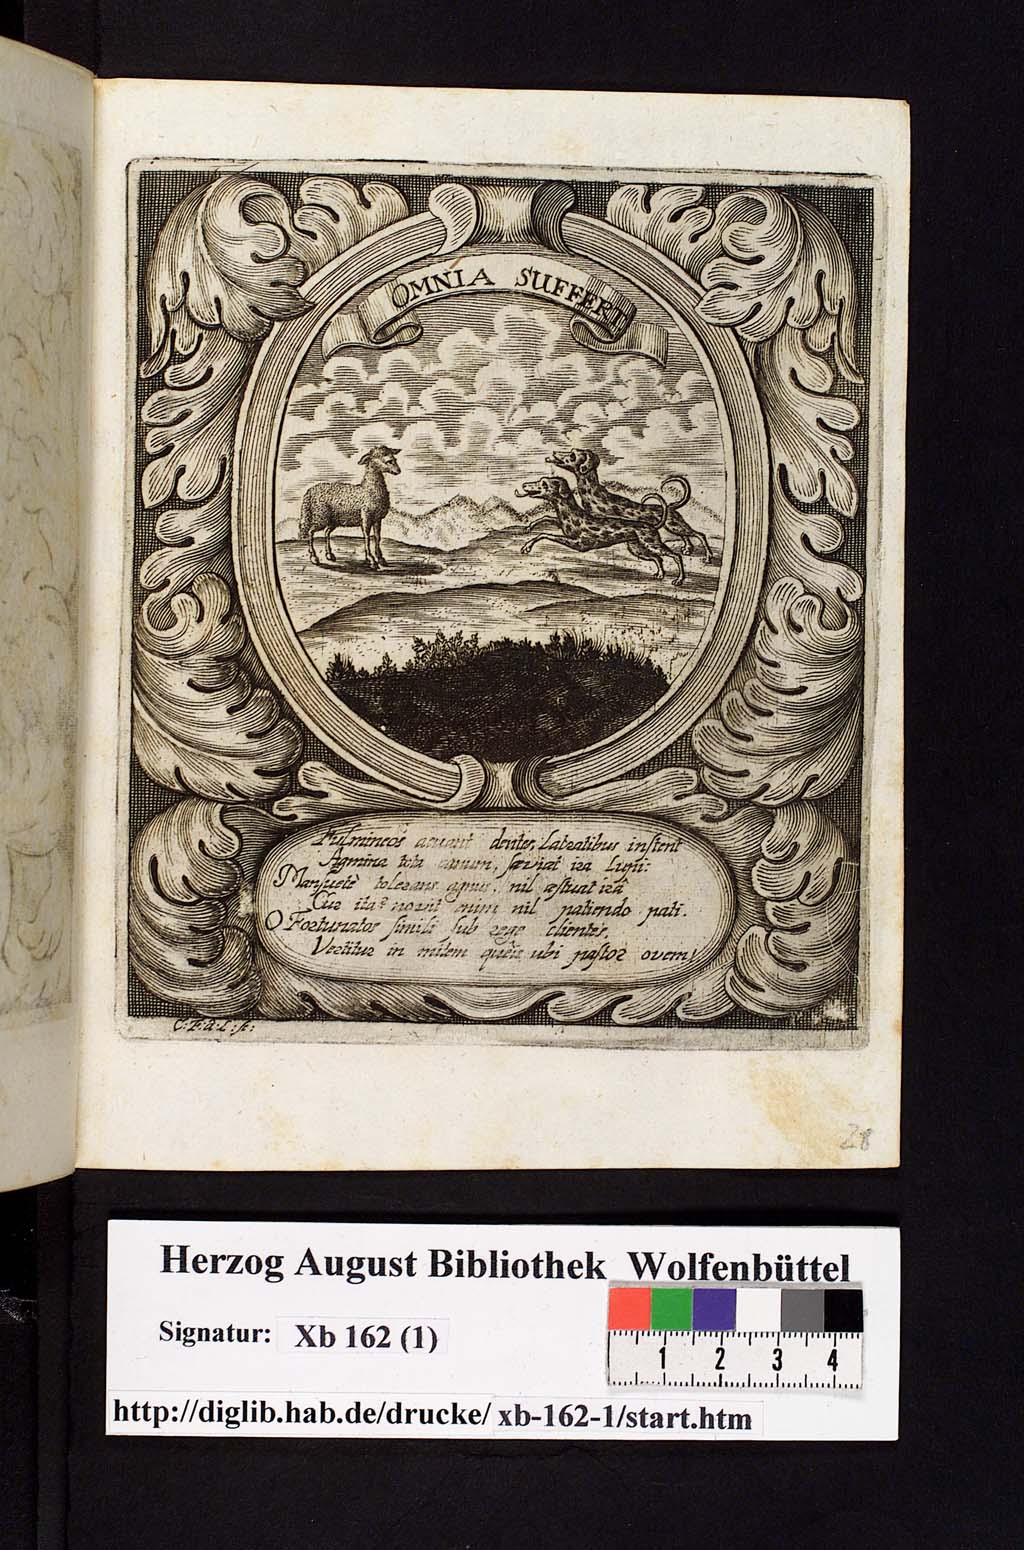 OMNIA SUFFERT.
Fulmineos acuant dentes, Latratibus instent
Agmina tota canum, sæviat ira Lupi:
Mansuetè tolerans agnus, nil æstuat irâ
Cur ita? novit enim nil patiendo pati.
O Fortunatos simili sub rege clientes,
Vertitur in mitem queîs ubi pastor ovem!
C: F: A: L: fe:
28
Herzog August Bibliothek Wolfenbüttel
Signatur: Xb 162 (1)
1 2 3 4
http://diglib.hab.de/drucke/ xb-162-1/start.htm